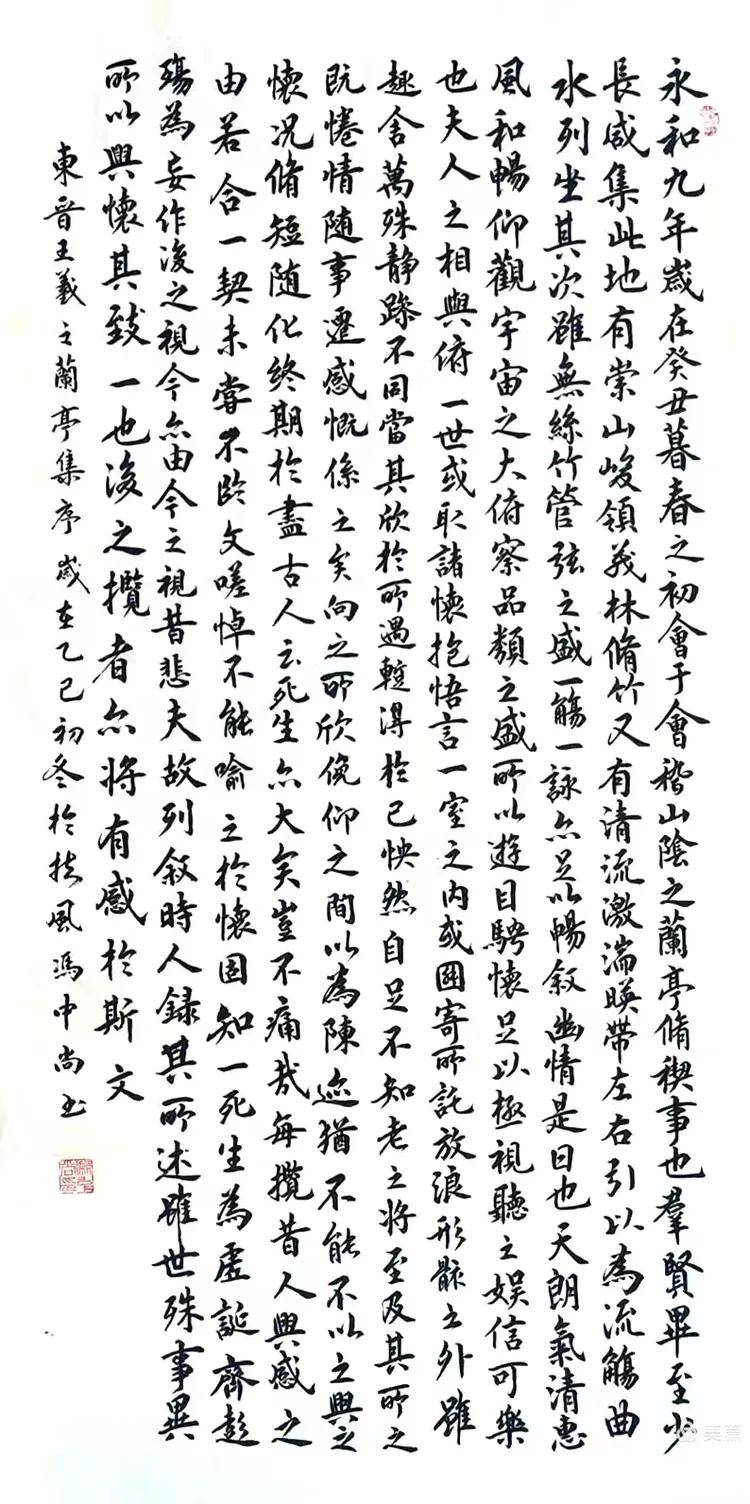 永和九年歲在癸丑暮春之初會于會稽山陰之蘭亭脩稧事也羣賢畢至少
長咸集此地有崇山峻領茂林脩竹又有清流激湍暎帶左右引以為流觴曲
水列坐其次雖無絲竹管弦之盛一觴一詠亦足以暢敘幽情是日也天朗氣清惠
風和暢仰觀宇宙之大俯察品類之盛所以遊目騁懷足以極視聽之娱信可樂
也夫人之相與俯一世或取諸懷抱悟言一室之内或因寄所託放浪形骸之外雖
趣舍萬殊静躁不同當其欣於所遇蹔得於己怏然自足不知老之將至及其所之
既惓情随事遷感慨係之矣向之所欣俛仰之間以為陳迹猶不能不以之興之
懷况脩短随化終期於盡古人云死生亦大矣豈不痛哉每攬昔人興感之
由若合一契未嘗不臨文嗟悼不能喻之於懷固知一死生為虛誕齊彭
殤為妄作後之視今亦由今之視昔悲夫故列敘時人録其所述雖世殊事異
所以興懷其致一也後之攬者亦將有感於斯文
東晉王羲之蘭亭集序歲在乙巳初冬於扶風馮中尚書
美篇